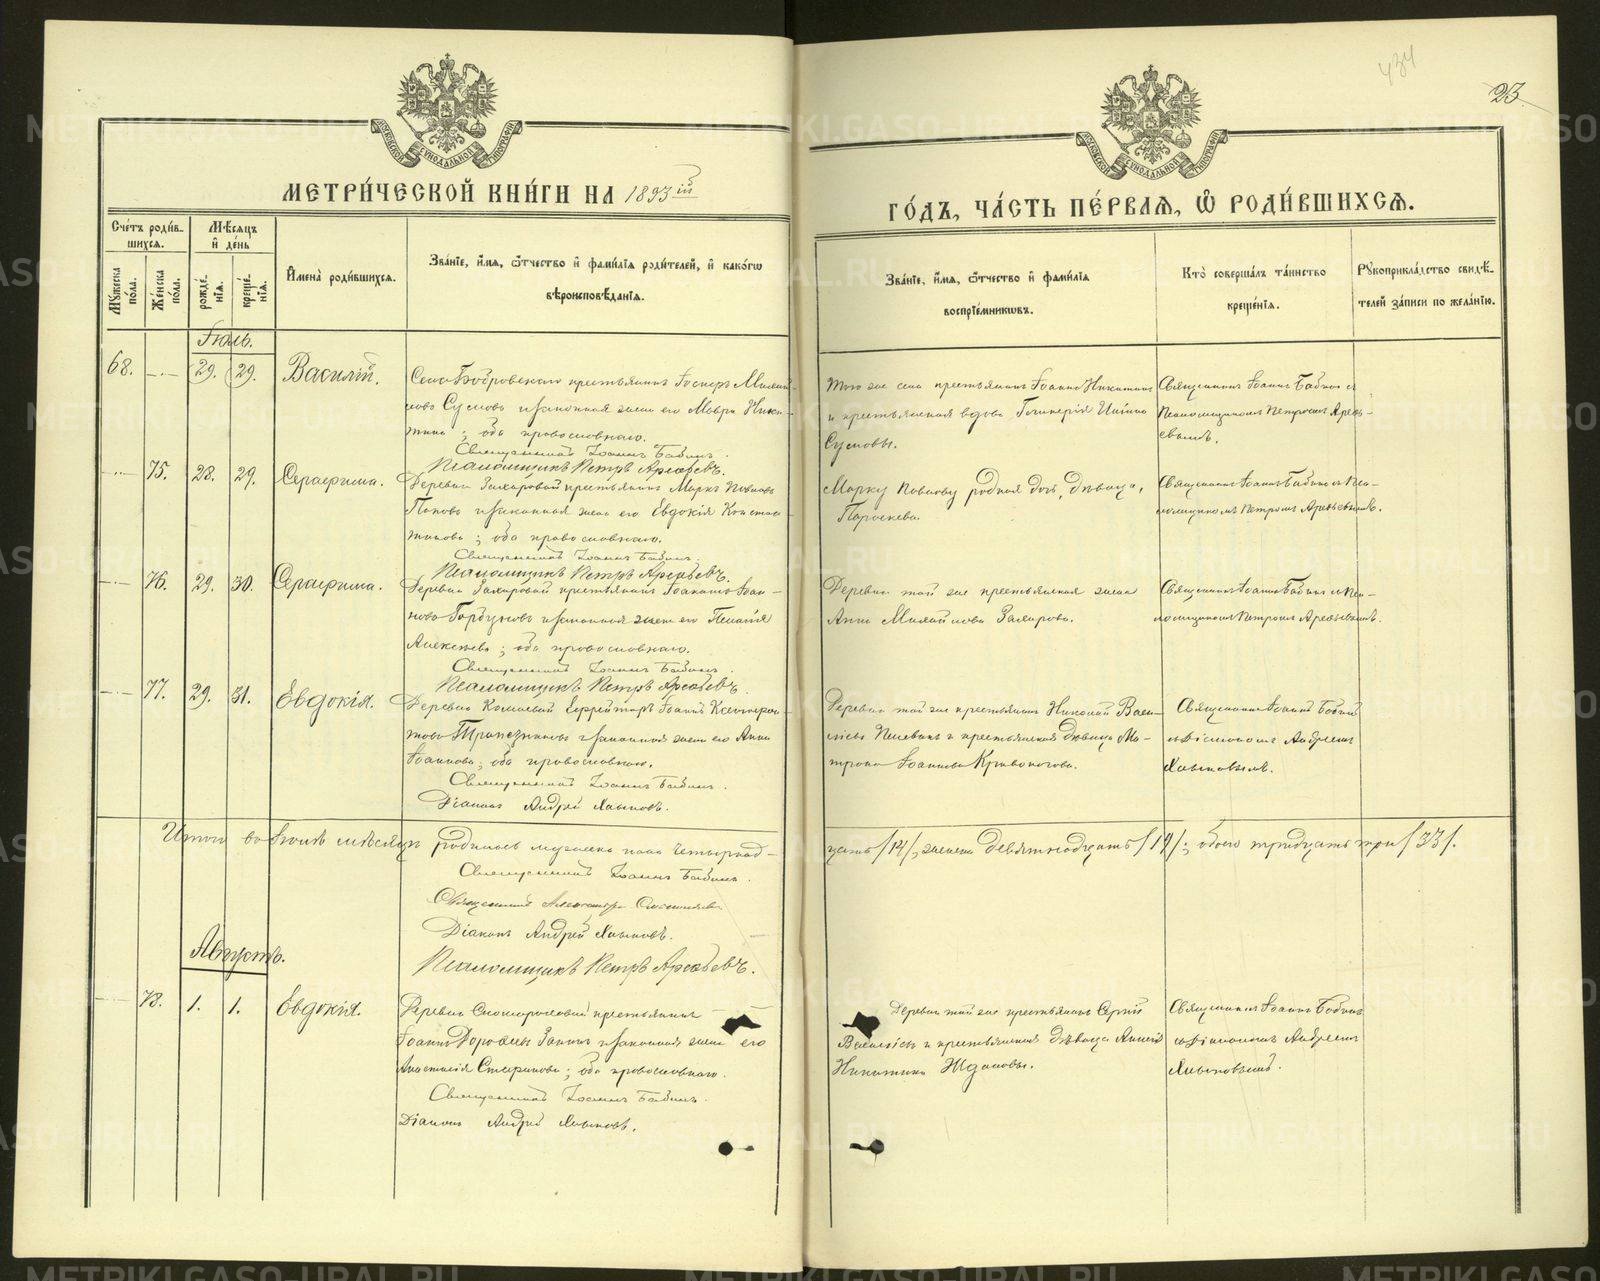 434
23
МОСКОВСКОЙ СѴНОДАЛЬНОЙ ТИПОГРАФІИ
МОСКОВСКОЙ СѴНОДАЛЬНОЙ ТИПОГРАФІИ
МЕТРИ́ЧЕСКОЙ КНИ́ГИ НА 1893 ій
ГО́ДЪ, ЧА́СТЬ ПЕ́РВАѦ, Ѽ РОДИ́ВШИХСѦ.
Сче́тъ роди́в-
шихся.
Мѣсяцъ
и҆ де́нь
Мꙋжеска по́ла.
Же́нска по́ла.
рожде́-
нїѧ.
креще́-
нїѧ.
И҆мена̀ роди́вшихся.
Зва́нїе, и҆́мя, ѻ҆́тчество и҆ фами́лїѧ роди́телей, и҆ како́гѡ
вѣроисповѣ́данїѧ.
Зва́нїе, и҆́мя, ѻ҆́тчество и҆ фами́лїѧ
воспрїе́мникѡвъ.
Кто̀ соверша́лъ та́инство
креще́нїѧ.
Рꙋкоприкла́дство свидѣ́-
телей за́писи по жела́нїю.
Іюль.
68.
29.
29.
Василій.
Села Бобровскаго крестьянинъ
Сусловъ и законная жена его Мавра Ники-
тина; оба православнаго.
Священникъ Іоаннъ Бабинъ.
Псаломщикъ Петръ Арефьевъ.
Того же села крестьянинъ Іоаннъ Никитинъ
и крестьянская вдова Гликерія
Сусловы.
Священникъ Іоаннъ Бабинъ съ
Псаломщикомъ Петромъ Арефь-
евымъ.
75.
28.
29.
Серафима.
Деревни Захаровой крестьянинъ Маркъ Павловъ
Поповъ и законная жена его Евдокія Конста-
тинова; оба православнаго.
Священникъ Іоаннъ Бабинъ.
Псаломщикъ Петръ Арефьевъ.
Марку Павлову родная дочь, дѣвица,
Параскева.
Священникъ Іоаннъ Бабинъ съ Пса-
ломщикомъ Петромъ Арефьевымъ.
76.
29.
30.
Серафима.
Деревни Захаровой крестьянинъ Іоаннъ Іоан-
новъ Горбуновъ и законная жена его Пелагія
Алексѣева; оба православнаго.
Священникъ Іоаннъ Бабинъ.
Псаломщикъ Петръ Арефьевъ.
Деревни той же крестьянская жена
Анна Михайлова Захарова.
Священникъ Іоаннъ Бабинъ съ Пса-
ломщикомъ Петромъ Арефьевымъ.
77.
29.
31.
Евдокія.
Деревни Ефрейторъ Іоаннъ
Трапезниковъ и законная жена его Анна
Іоаннова; оба православнаго.
Священникъ Іоаннъ Бабинъ.
Діаконъ Андрей Хлыновъ.
Деревни той же крестьянинъ Николай Васи-
льевъ и крестьянская дѣвица Ма-
трона Іоаннова Кривоногова.
Священникъ Іоаннъ Бабинъ
съ Діакономъ Андреемъ
Хлыновымъ.
Итого въ Іюлѣ мѣсяцѣ родилось мужеска пола четырнад-
цать /14/, женска девятнадцать /19/; обоего тридцать три /33/.
Священникъ Іоаннъ Бабинъ.
Священникъ Александръ
Діаконъ Андрей Хлыновъ.
Псаломщикъ Петръ Арефьевъ.
Августъ.
78.
1.
1.
Евдокія.
Деревни крестьянинъ
Іоаннъ Дороѳеевъ и законная жена его
Анастасія; оба православнаго.
Священникъ Іоаннъ Бабинъ.
Діаконъ Андрей Хлыновъ.
Деревни той же крестьянинъ Сергій
Васильевъ и крестьянская дѣвица
Никитина Ждановы.
Священникъ Іоаннъ Бабинъ
съ Діакономъ Андреемъ
Хлыновымъ.
METRIKI.GASO-URAL.RU